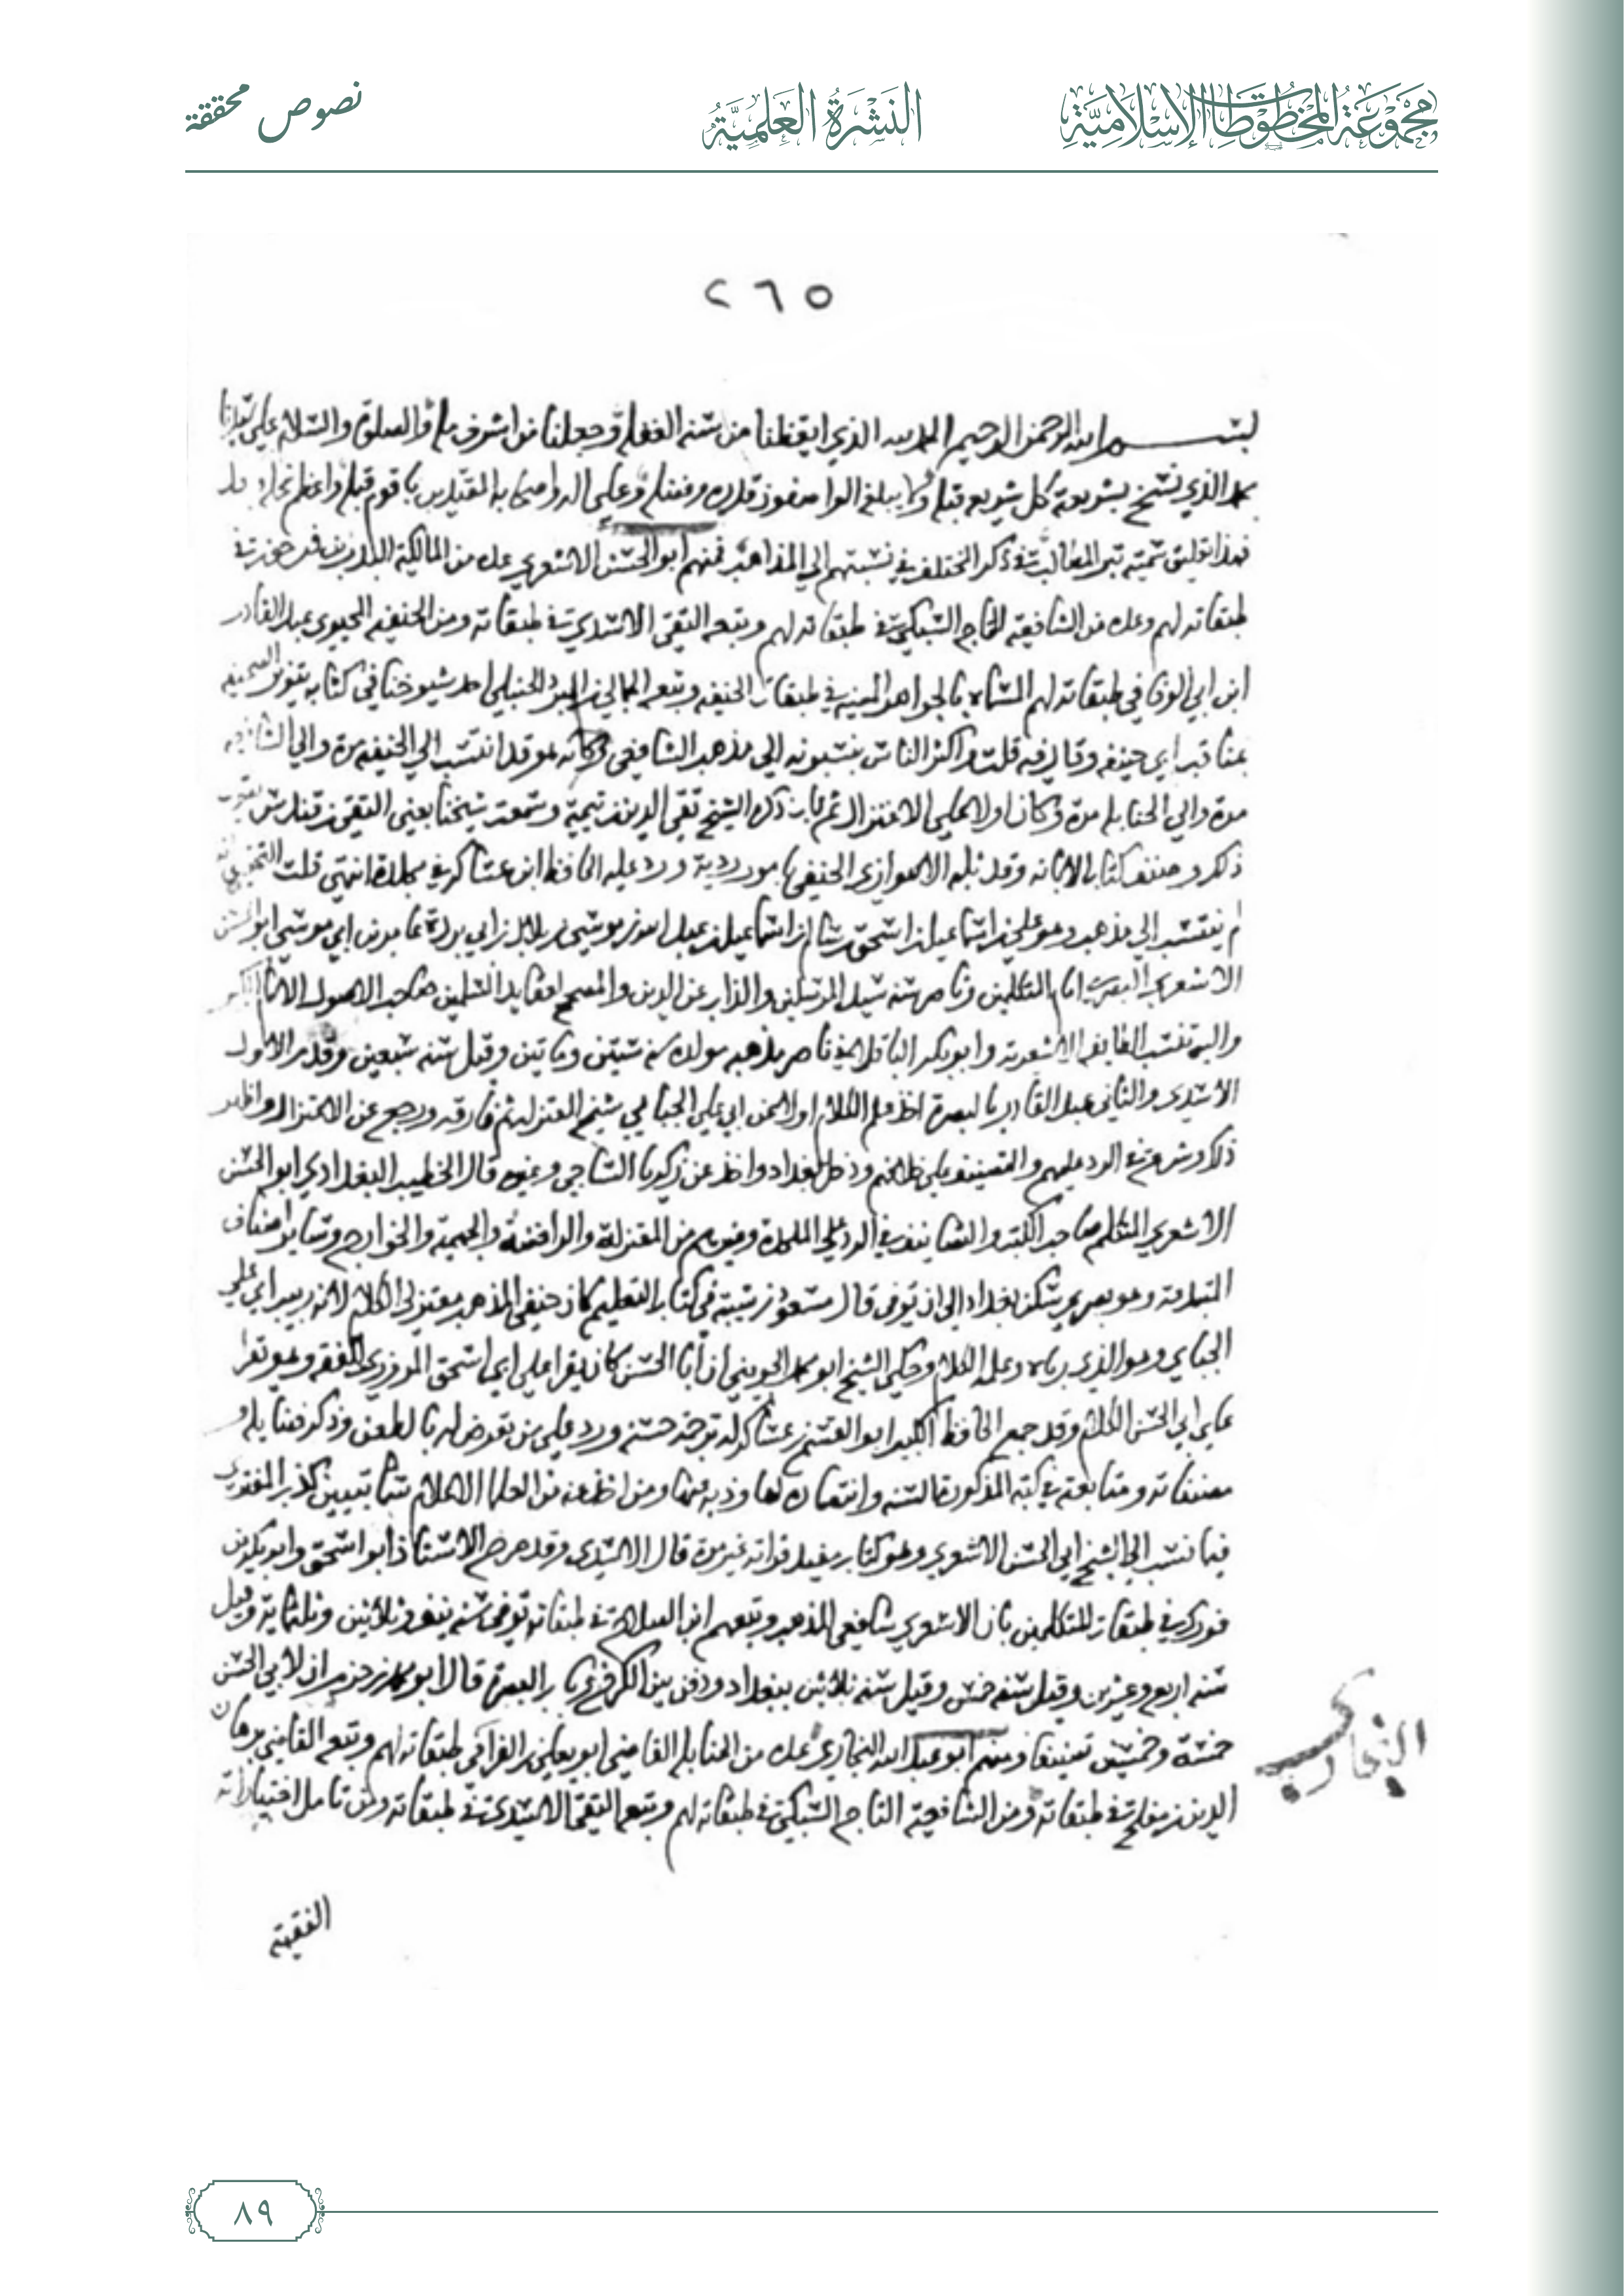 مجموعة المخطوطات الإسلامية
النشرة العلمية
نصوص محققة
٢٦٥
بسم الله الرحمن الرحيم الحمد لله الذي ايقظنا من سنة الغفلة وجعلنا من اشرف ملة والصلوة والسلام على سيدنا
محمد الذي نسخ بشريعته كل شريعة قبله ولا يبلغ الواصفون قدره وفضله وعلى اله واصحابه المقتدين
فهذا تعليق سميته تبر المطالب في ذكر المختلف في نسبتهم الى المذاهب فمنهم ابو الحسن الاشعري عده من المالكية البدر بن فرحون في
طبقاته لهم وعده من الشافعية التاج السبكي في طبقاته لهم وتبعه التقي الاسدي في طبقاته ومن الحنفية المحيوي عبد القادر
ابن ابي الوفا في طبقاته لهم المسماه بالجواهر المضية في طبقات الحنفية وتبعه الجمالي بن المبرد الحنبلي احد شيوخنا في كتابه تنوير الصحيفة
بمناقب ابي حنيفة وقال فيه قلت واكثر الناس ينسبونه الى مذهب الشافعي وكانه هو قد انتسب الى الحنفية مرة والى الشافعية
مرة والى الحنابلة مرة وكان اولا على الاعتزال ثم تاب ذكره الشيخ تقي الدين بن تيمية وسمعت شيخنا يعني التقي بن قندس يقرب
ذكره وصنف كتاب الابانه وقد ثلبه الاهوازي الحنفي بامور ردية ورد عليه الحافظ ابن عساكر في مجلدة انتهى قلت التحقيق انه
لم ينتسب الى مذهب وهو علي بن اسماعيل بن اسحق بن سالم بن اسماعيل بن عبد الله بن موسى بن بلال بن ابي بردة عامر بن ابي موسى ابو الحسن
الاشعري البصري امام المتكلمين وناصر سنة سيد المرسلين والذاب عن الدين والمصحح لعقايد المسلمين صاحب الاصول الامام الكبير
واليه تنسب الطايفة الاشعرية وابو بكر الباقلاني ناصر مذهبه مولده سنة ستين وماتين وقيل سنة سبعين وقدم الاول
الاسدي والثاني عبد القادر بالبصرة اخذ علم الكلام اولا عن ابي علي الجبائي شيخ المعتزلة ثم فارقه ورجع عن الاعتزال واظهر
ذلك وشرع في الرد عليهم والتصنيف على خلافهم ودخل بغداد واخذ عن زكريا الساجي وغيره قال الخطيب البغدادي ابو الحسن
الاشعري المتكلم صاحب الكتب والتصانيف في الرد على الملحدة وغيرهم من المعتزلة والرافضة والجهمية والخوارج وساير اصناف
المبتدعة وهو بصري سكن بغداد الى ان توفي قال مسعود بن شيبة في كتاب التعليم كان حنفي المذهب معتزلي الكلام لانه ربيب ابي علي
الجبائي وهو الذي رباه وعلمه الكلام وحكى الشيخ ابو محمد الجويني ان أبا الحسن كان يقرا على ابي اسحق المروزي الفقه وهو يقرا
على ابي الحسن الكلام وقد جمع الحافظ الكبير ابو القسم بن عساكر له ترجمة حسنة ورد على من تعرض له بالطعن وذكر فضايله و
مصنفاته ومتابعته في كتبه المذكورة السنة وانتصاره لها وذبه عنها ومن اخذ عنه من العلماء الاعلام سماه تبيين كذب المفتري
فيما نسب الى الشيخ ابي الحسن الاشعري وهو كتاب مفيد قراته غير مرة قال الاسدي وقد صرح الاستاذ أبو اسحق وابو بكر بن
فورك في طبقات المتكلمين بان الاشعري شافعي المذهب وتبعهم ابن الصلاح في طبقاته توفي سنة نيف وثلاثين وثلثماية وقيل
سنة اربع وعشرين وقيل سنة خمس وقيل سنة ثلاثين ببغداد ودفن بين الكرخ وباب البصرة قال ابو محمد بن حزم ان لابي الحسن
خمسة وخمسين تصنيفا ومنهم ابو عبد الله البخاري عده من الحنابلة القاضي ابو يعلى بن الفرا في طبقاته لهم وتبعه القاضي برهان
الدين بن مفلح في طبقاته ومن الشافعية التاج السبكي في طبقاته لهم وتبعه التقي الاسدي في طبقاته ومن تامل اختياراته
البخاري
الفقهية
٨٩